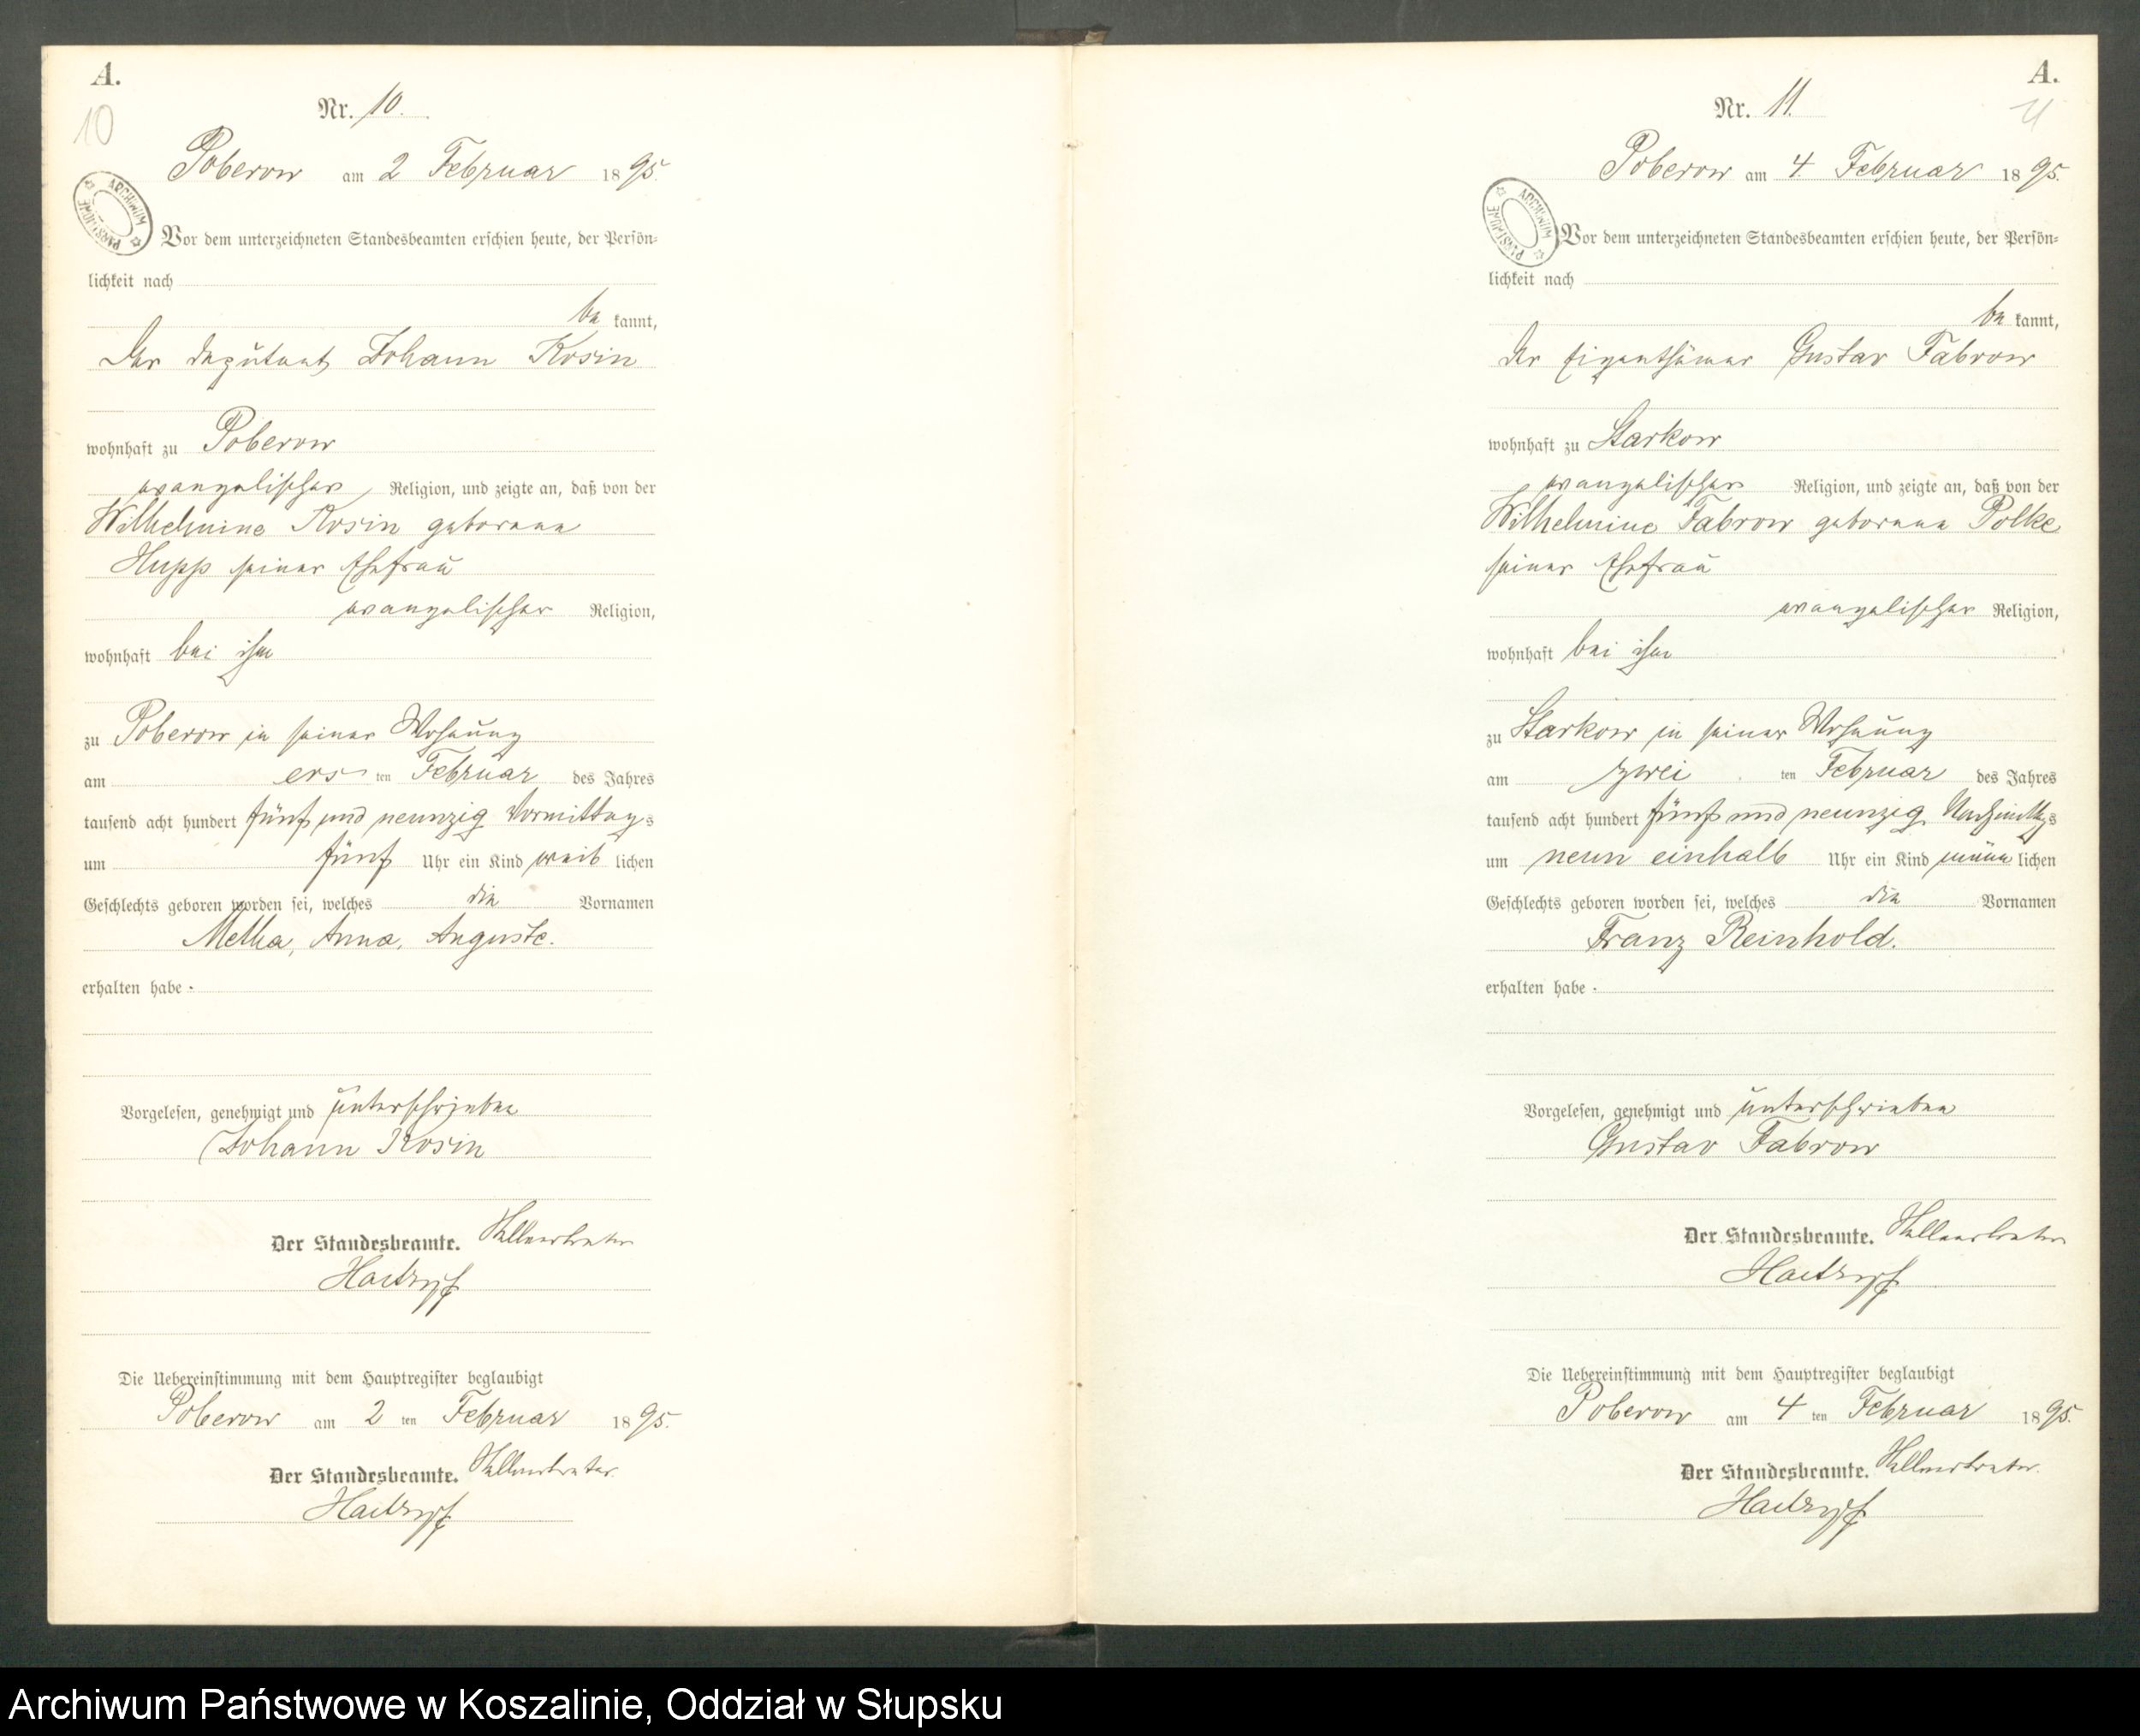 A.
10
Nr. 10.
Poberow am 2 Februar 1895.
ARCHIWUM PAŃSTWOWE
Vor dem unterzeichneten Standesbeamten erschien heute, der Persön=
lichkeit nach
be kannt,
Der Deputant Johann Kosin
wohnhaft zu Poberow
evangelischer Religion, und zeigte an, daß von der
Wilhelmine Kosin geborene
Hupp seiner Ehefrau
evangelischer Religion,
wohnhaft bei ihm
zu Poberow in seiner Wohnung
am ers ten Februar des Jahres
tausend acht hundert fünf und neunzig Vormittags
um fünf Uhr ein Kind weib lichen
Geschlechts geboren worden sei, welches die Vornamen
Metha, Anna, Auguste.
erhalten habe.
Vorgelesen, genehmigt und unterschrieben
Johann Kosin
Der Standesbeamte. Stellvertreter
Die Uebereinstimmung mit dem Hauptregister beglaubigt
Poberow am 2 ten Februar 1895.
Der Standesbeamte. Stellvertreter.
A.
11
Nr. 11.
Poberow am 4 Februar 1895.
ARCHIWUM PAŃSTWOWE
Vor dem unterzeichneten Standesbeamten erschien heute, der Persön=
lichkeit nach
be kannt,
der Eigenthümer Gustav Fabrow
wohnhaft zu Starkow
evangelischer Religion, und zeigte an, daß von der
Wilhelmine Fabrow geborene Polke
seiner Ehefrau
evangelischer Religion,
wohnhaft bei ihm
zu Starkow in seiner Wohnung
am zwei ten Februar des Jahres
tausend acht hundert fünf und neunzig Nachmittags
um neun einhalb Uhr ein Kind männ lichen
Geschlechts geboren worden sei, welches die Vornamen
Franz Reinhold.
erhalten habe.
Vorgelesen, genehmigt und unterschrieben
Gustav Fabrow
Der Standesbeamte. Stellvertreter
Die Uebereinstimmung mit dem Hauptregister beglaubigt
Poberow am 4 ten Februar 1895.
Der Standesbeamte. Stellvertreter.
Archiwum Państwowe w Koszalinie, Oddział w Słupsku